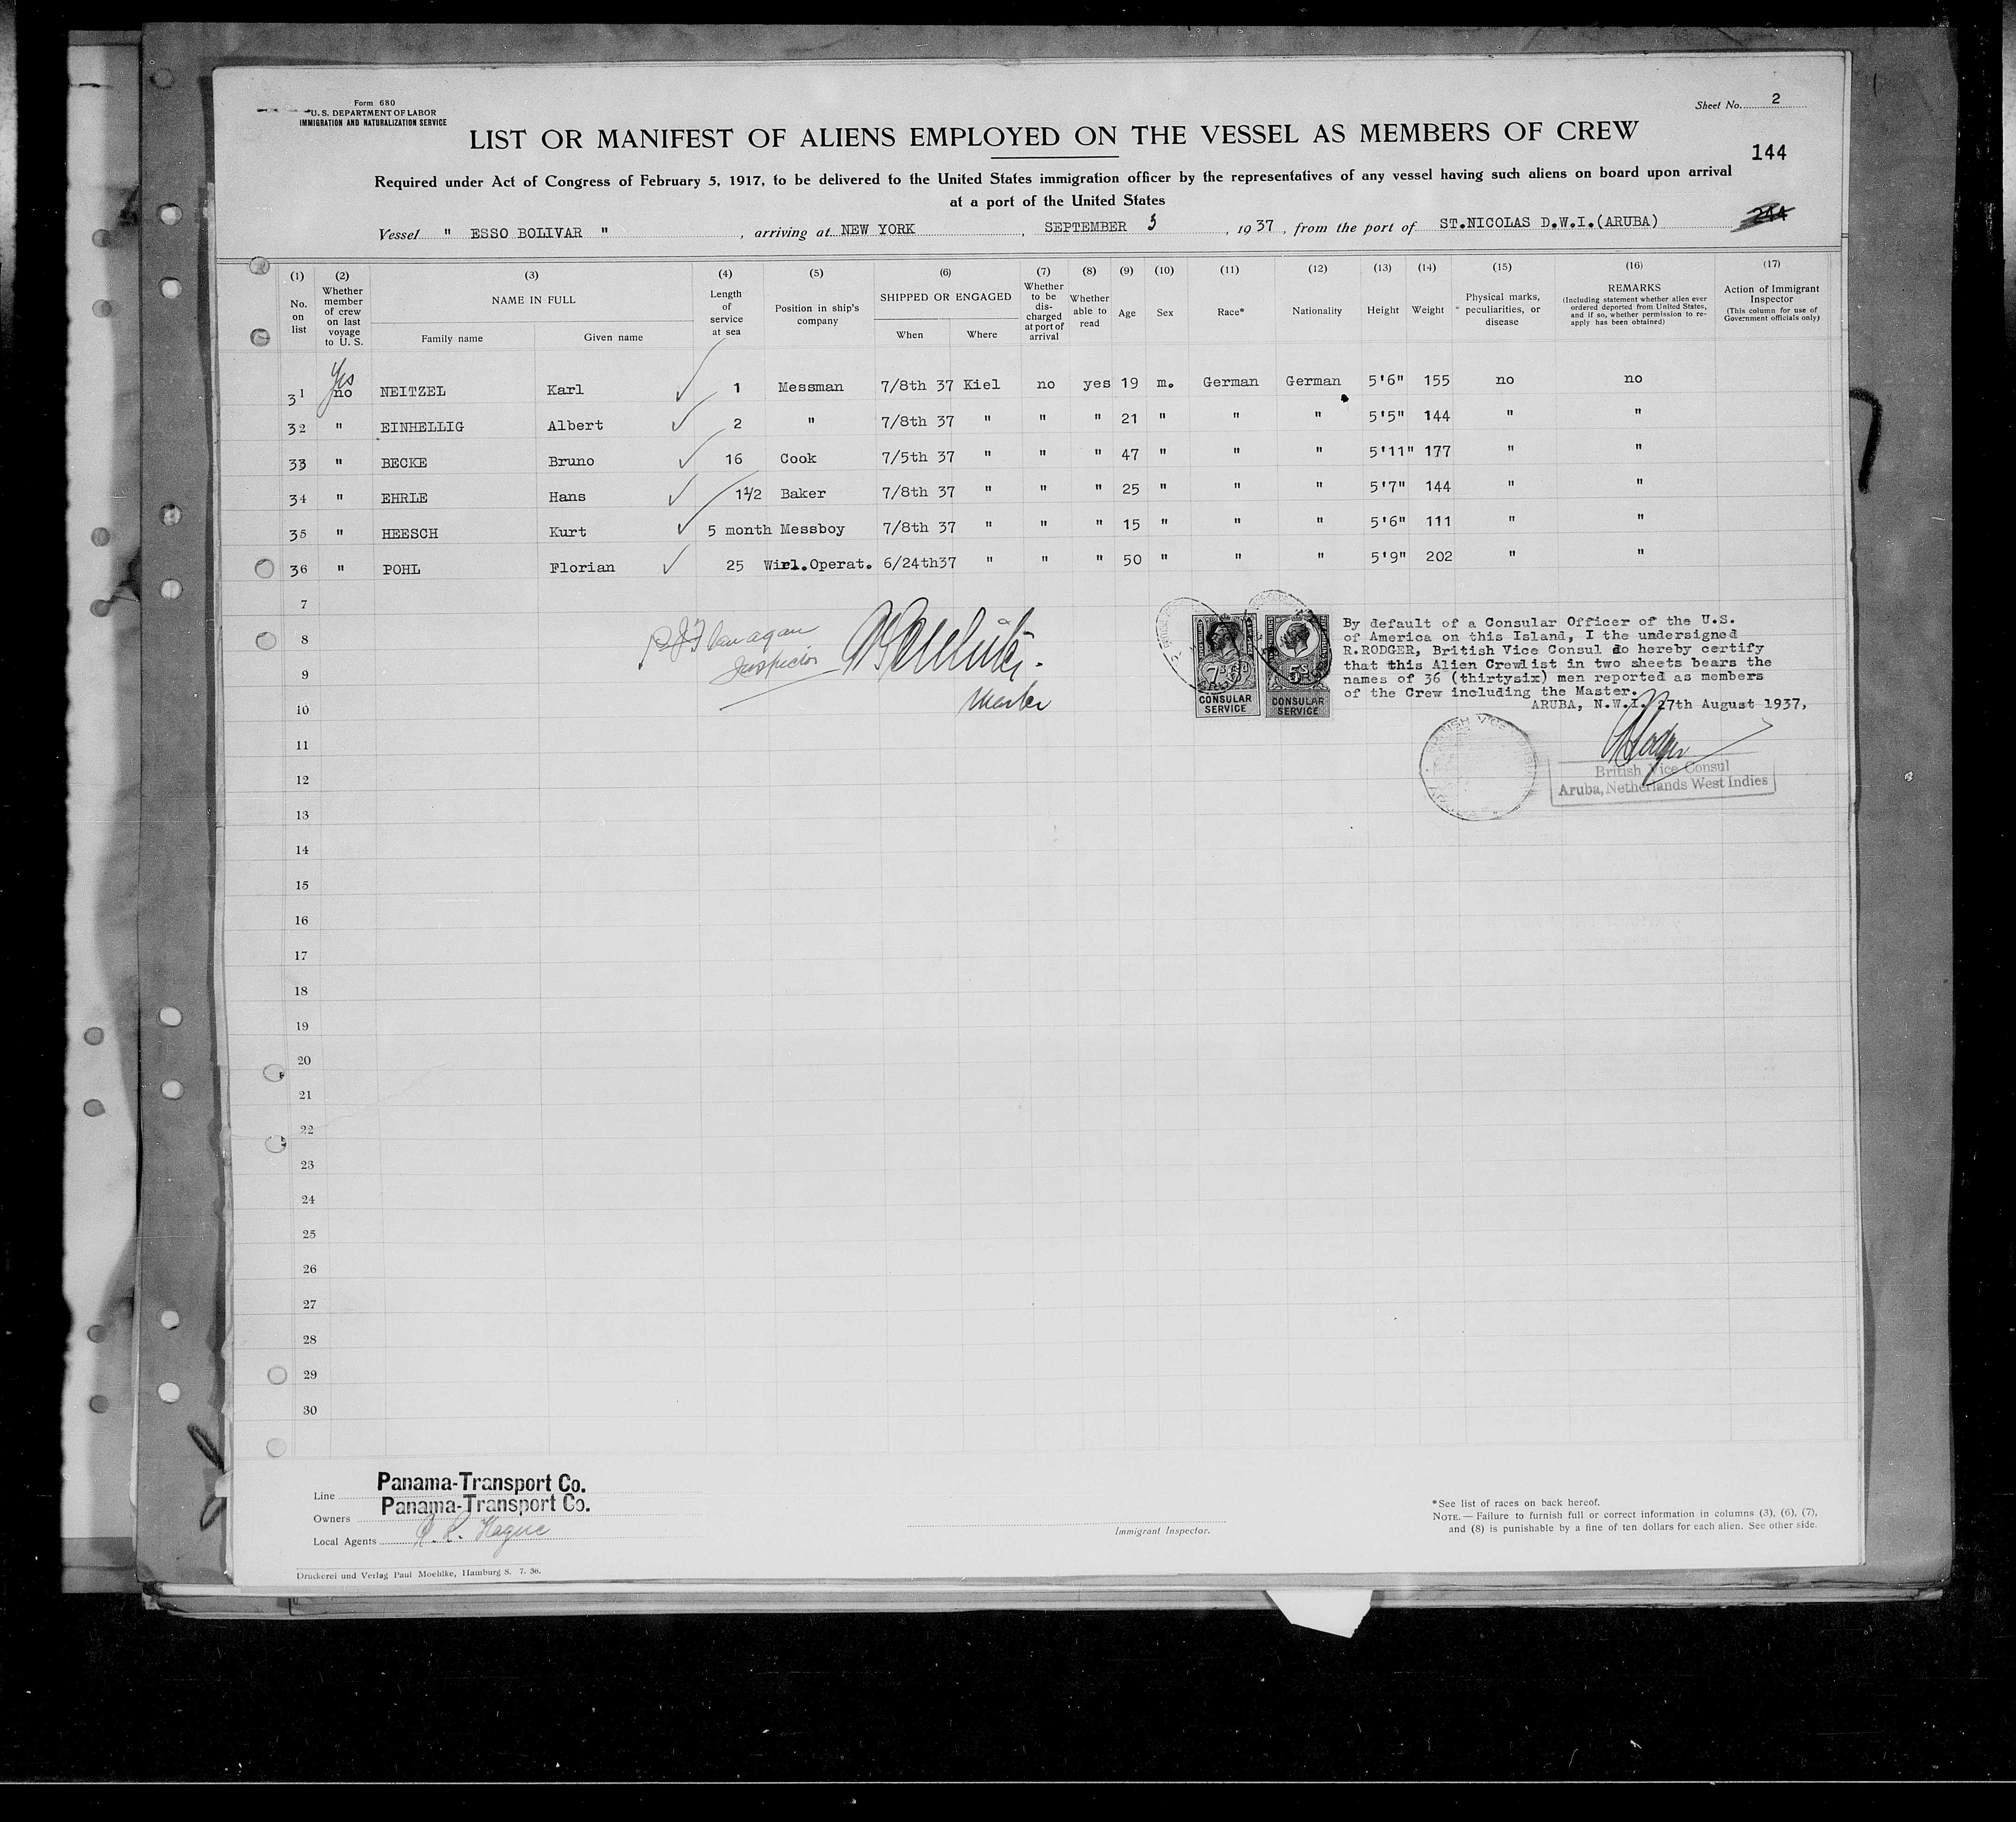 Form 680
U. S. DEPARTMENT OF LABOR
IMMIGRATION AND NATURALIZATION SERVICE
Sheet No. 2
LIST OR MANIFEST OF ALIENS EMPLOYED ON THE VESSEL AS MEMBERS OF CREW
144
Required under Act of Congress of February 5, 1917, to be delivered to the United States immigration officer by the representatives of any vessel having such aliens on board upon arrival
at a port of the United States
244
Vessel " ESSO BOLIVAR ", arriving at NEW YORK, SEPTEMBER 3, 1937, from the port of ST.NICOLAS D.W.I.(ARUBA)
(1) (2) (3) (4) (5) (6) (7) (8) (9) (10) (11) (12) (13) (14) (15) (16) (17)
No. on list
Whether member of crew on last voyage to U. S.
NAME IN FULL
Family name Given name
Length of service at sea
Position in ship's company
SHIPPED OR ENGAGED
When Where
Whether to be discharged at port of arrival
Whether able to read
Age
Sex
Race*
Nationality
Height
Weight
Physical marks, peculiarities, or disease
REMARKS
(Including statement whether alien ever ordered deported from United States, and if so, whether permission to re-apply has been obtained)
Action of Immigrant Inspector
(This column for use of Government officials only)
Yes
31 no NEITZEL Karl 1 Messman 7/8th 37 Kiel no yes 19 m. German German 5'6" 155 no no
32 " EINHELLIG Albert 2 " 7/8th 37 " " " 21 " " " 5'5" 144 " "
33 " BECKE Bruno 16 Cook 7/5th 37 " " " 47 " " " 5'11" 177 " "
34 " EHRLE Hans 1½ Baker 7/8th 37 " " " 25 " " " 5'7" 144 " "
35 " HEESCH Kurt 5 month Messboy 7/8th 37 " " " 15 " " " 5'6" 111 " "
36 " POHL Florian 25 Wirl.Operat. 6/24th37 " " " 50 " " " 5'9" 202 " "
7
8
9
10
11
12
13
14
15
16
17
18
19
20
21
22
23
24
25
26
27
28
29
30
Flanagan
Inspector
Master
CONSULAR SERVICE
5s
CONSULAR SERVICE
By default of a Consular Officer of the U.S.
of America on this Island, I the undersigned
R.RODGER, British Vice Consul do hereby certify
that this Alien Crewlist in two sheets bears the
names of 36 (thirtysix) men reported as members
of the Crew including the Master.
ARUBA, N.W.I. 27th August 1937,
RRodger
British Vice Consul
Aruba, Netherlands West Indies
Line Panama-Transport Co.
Owners Panama-Transport Co.
Local Agents R. L. Hague
Immigrant Inspector.
*See list of races on back hereof.
NOTE. — Failure to furnish full or correct information in columns (3), (6), (7),
and (8) is punishable by a fine of ten dollars for each alien. See other side.
Druckerei und Verlag Paul Moehlke, Hamburg 8. 7. 36.